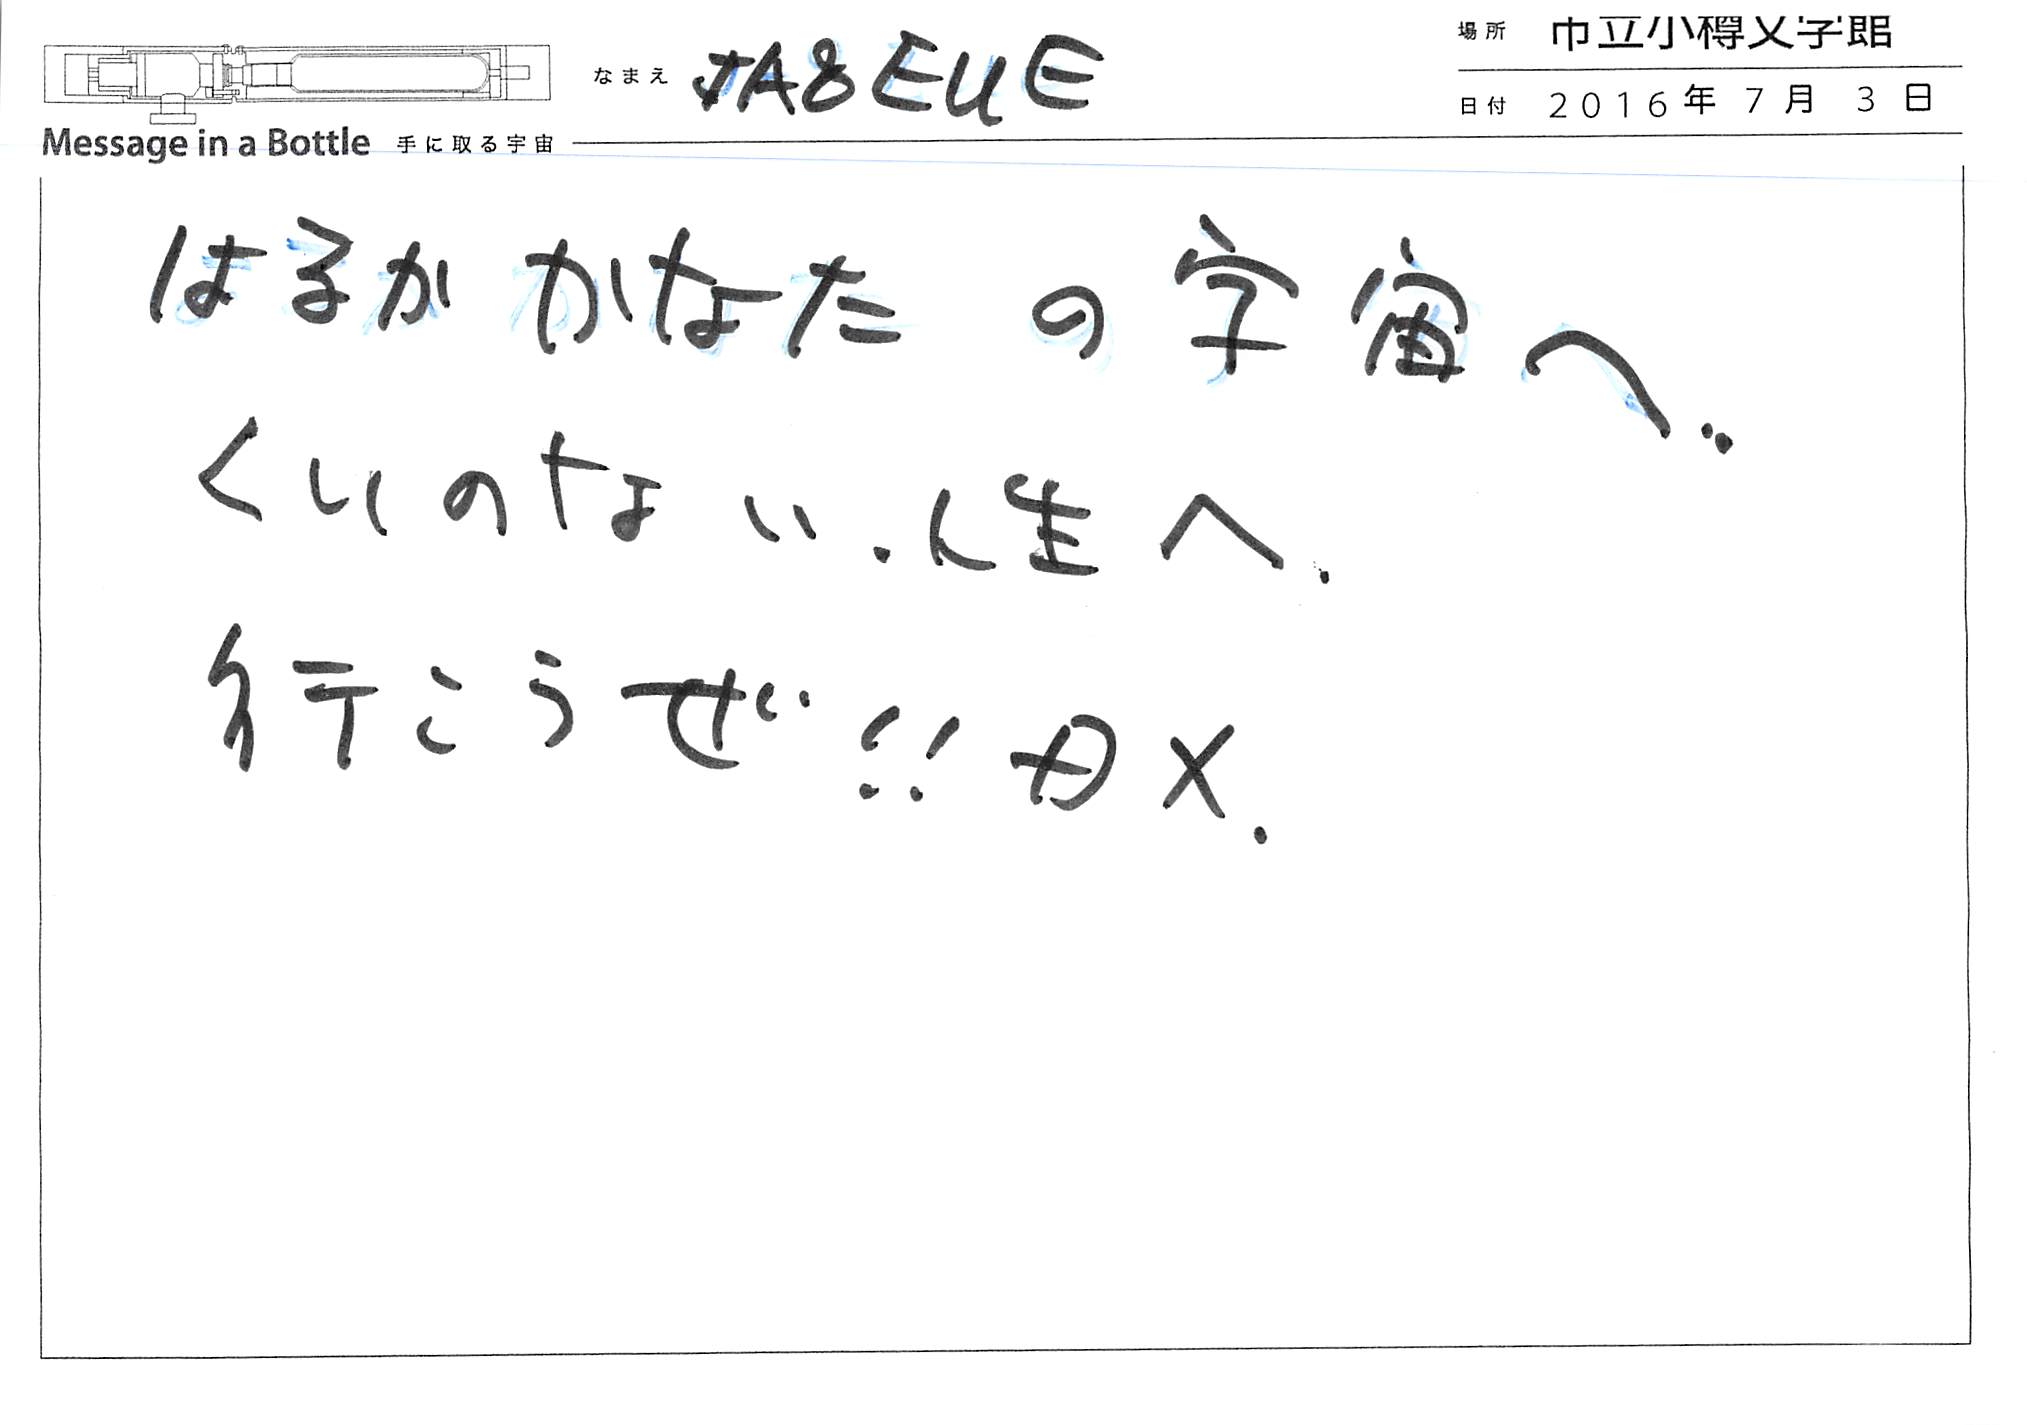 場所 市立小樽文字館
なまえ JA8EUE
日付 2016年 7月 3日
Message in a Bottle 手に取る宇宙
はるか かなた の 宇宙へ..
くいのない.人生へ.
行こうぜ!!